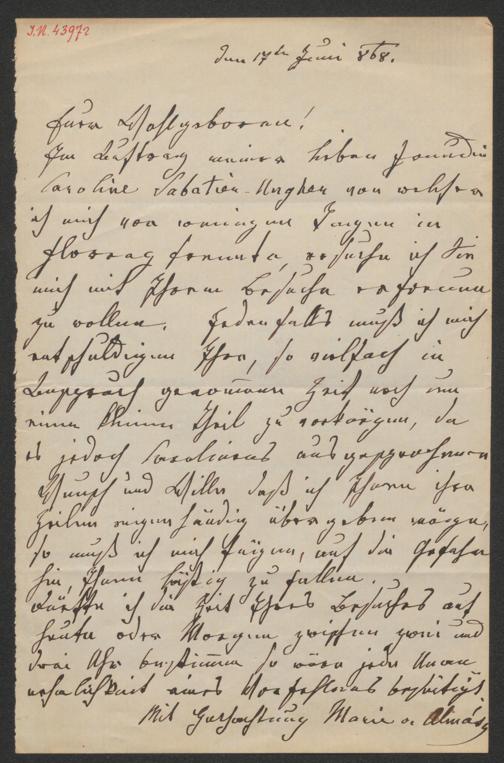 I.N. 43972
den 17ten Juni 868.
Euer Wohlgeboren!
Im Auftrag meiner lieben Freundin
Caroline Sabatier-Ungher von welcher
ich mich vor wenigen Tagen in
Florenz trennte, ersuche ich Sie
mich mit Ihrem Besuche erfreuen
zu wollen. Jedenfalls muß ich mich
entschuldigen Ihre, so vielfach in
Anspruch genommene Zeit noch um
einen kleinen Theil zu verkürzen, da
es jedoch Carolinens ausgesprochener
Wunsch und Wille daß ich Ihnen ihre
Zeilen eigenhändig übergeben möge,
so muß ich mich fügen, auf die Gefahr
hin, Ihnen lästig zu fallen.
Dürfte ich die Zeit Ihres Besuches auf
heute oder Morgen zwischen zwei und
drei Uhr bestimmen so wäre jede Unan
nehmlichkeit eines Verfehlens beseitigt.
Mit Hochachtung Marie v Almásy